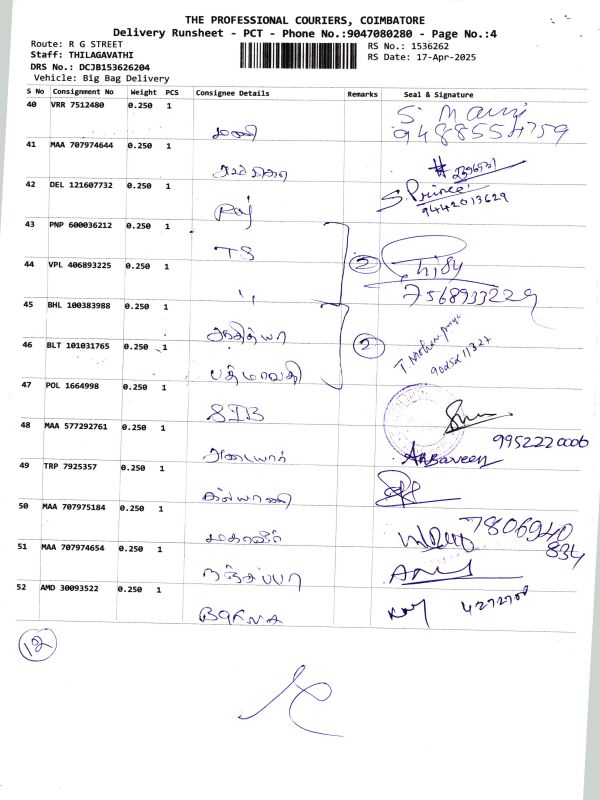 THE PROFESSIONAL COURIERS, COIMBATORE
Delivery Runsheet - PCT - Phone No.:9047080280 - Page No.:4
Route: R G STREET
Staff: THILAGAVATHI
DRS No.: DCJB153626204
Vehicle: Big Bag Delivery
RS No.: 1536262
RS Date: 17-Apr-2025
S No Consignment No Weight PCS Consignee Details Remarks Seal & Signature
40 VRR 7512480 0.250 1
மணி
S. Mani
9488554759
41 MAA 707974644 0.250 1
42 DEL 121607732 0.250 1
Raj
S. Prince
9442013629
43 PNP 600036212 0.250 1
TS
2
44 VPL 406893225 0.250 1
"
7568933229
45 BHL 100383988 0.250 1
ஆதித்யா
2
T. Mohan
46 BLT 101031765 0.250 1
பத்மாவதி
47 POL 1664998 0.250 1
SIB
48 MAA 577292761 0.250 1
அடையார்
9952220006
49 TRP 7925357 0.250 1
கல்யாணி
50 MAA 707975184 0.250 1
மகாவீர்
7806940
834
51 MAA 707974654 0.250 1
நஞ்சப்பா
52 AMD 30093522 0.250 1
12